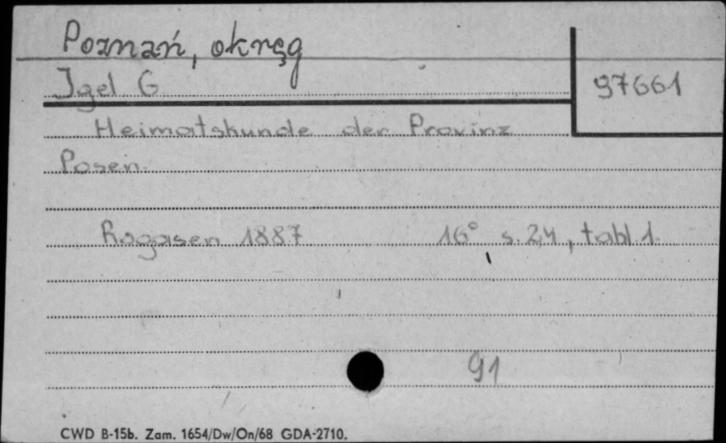 Poznań, okręg
Igel G
97661
Heimatskunde der Provinz
Posen.
Rogasen 1887 16° s. 24, tabl 1.
91
CWD B-15b. Zam. 1654/Dw/On/68 GDA-2710.